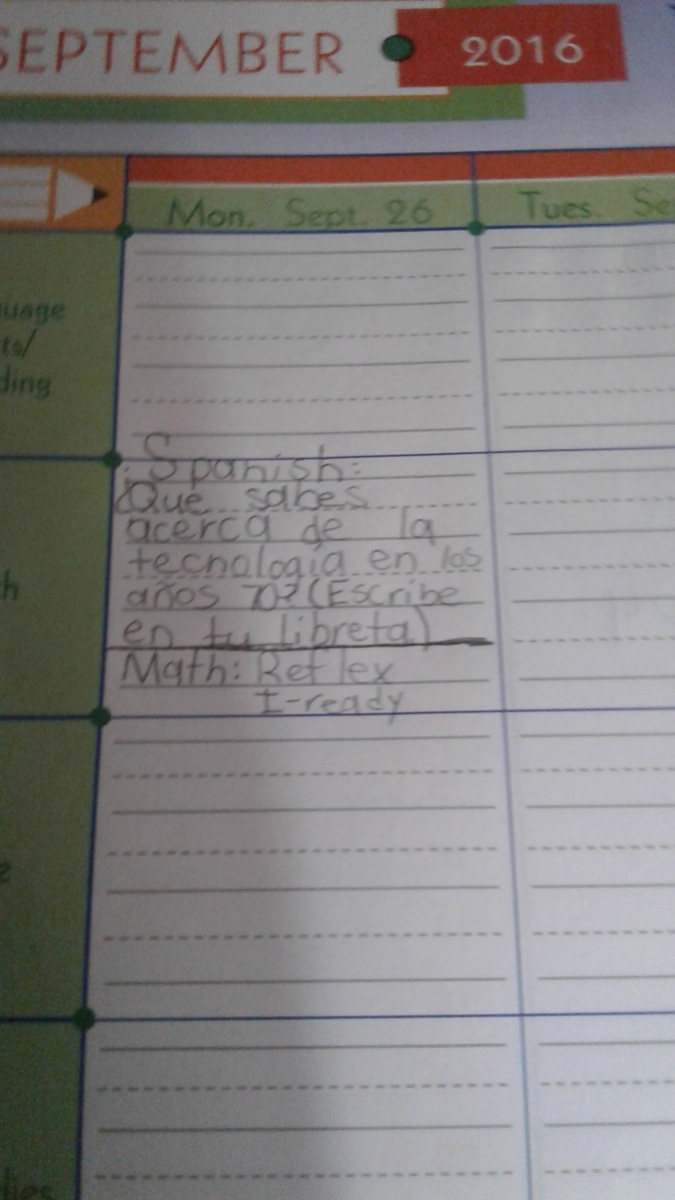 SEPTEMBER 2016
Mon. Sept. 26
Tues. Se
uage
ts/
ding
Spanish:
¿Que sabes
acerca de la
tecnologia en los
años 70? (Escribe
en tu libreta)
h
Math: Reflex
I-ready
lies